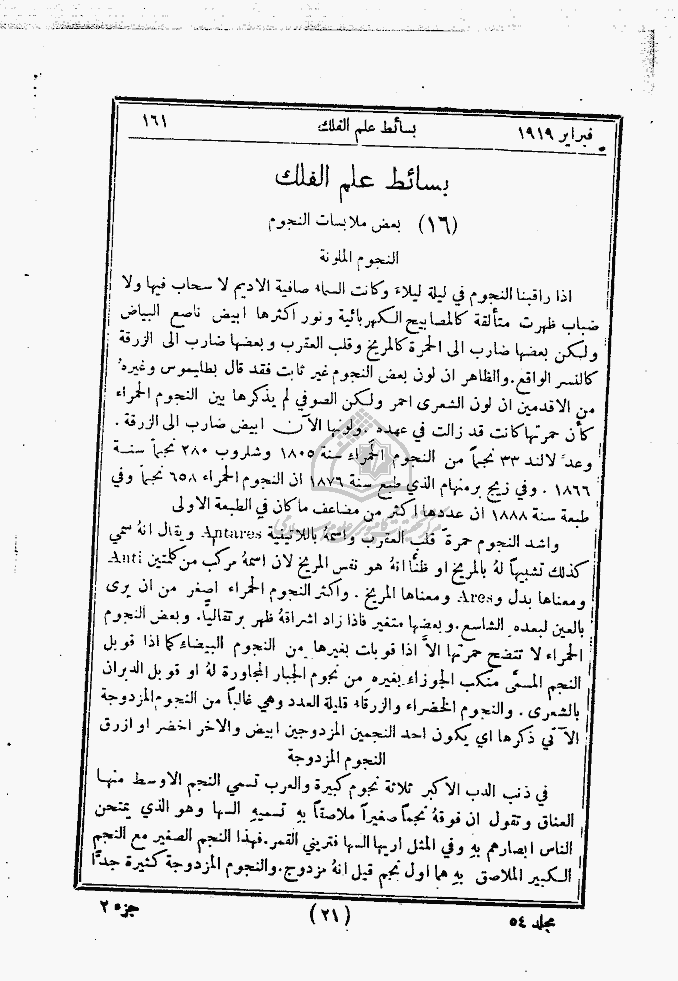 فبراير ١٩١٩ بسائط علم الفلك ١٦١
بسائط علم الفلك
(١٦) بعض ملابسات النجوم
النجوم الملونة
اذا راقبنا النجوم في ليلة ليلاء وكانت السماء صافية الاديم لا سحاب فيها ولا
ضباب ظهرت متألقة كالمصابيح الكهربائية ونور اكثرها ابيض ناصع البياض
ولكن بعضها ضارب الى الحمرة كالمريخ وقلب العقرب وبعضها ضارب الى الزرقة
كالنسر الواقع. والظاهر ان لون بعض النجوم غير ثابت فقد قال بطليموس وغيرهُ
من الاقدمين ان لون الشعرى احمر ولكن الصوفي لم يذكرها بين النجوم الحمراء
كأن حمرتها كانت قد زالت في عهده. ولونها الآن ابيض ضارب الى الزرقة.
وعدَّ لالند ٣٣ نجماً من النجوم الحمراء سنة ١٨٠٥ وشلروب ٢٨٠ نجماً سنة
١٨٦٦. وفي زيج برمنهام الذي طبع سنة ١٨٧٦ ان النجوم الحمراء ٦٥٨ نجماً وفي
طبعة سنة ١٨٨٨ ان عددها اكثر من مضاعف ما كان في الطبعة الاولى
واشد النجوم حمرة قلب العقرب واسمهُ باللاتينية Antares ويقال انهُ سمي
كذلك تشبيهاً لهُ بالمريخ او ظنًّا انهُ هو نفس المريخ لان اسمهُ مركب من كلمتين Anti
ومعناها بدل و Ares ومعناها المريخ. واكثر النجوم الحمراء اصغر من ان يرى
بالعين لبعده الشاسع. وبعضها متغير فاذا زاد اشراقهُ ظهر برتقالياً. وبعض النجوم
الحمراء لا تتضح حمرتها الاَّ اذا قوبلت بغيرها من النجوم البيضاء كما اذا قوبل
النجم المسمَّى منكب الجوزاء بغيره من نجوم الجبار المجاورة لهُ او قوبل الدبران
بالشعرى. والنجوم الخضراء والزرقاء قليلة العدد وهي غالباً من النجوم المزدوجة
الآتي ذكرها اي يكون احد النجمين المزدوجين ابيض والاخر اخضر او ازرق
النجوم المزدوجة
في ذنب الدب الاكبر ثلاثة نجوم كبيرة والعرب تسمي النجم الاوسط منها
العناق وتقول ان فوقهُ نجماً صغيراً ملاصقاً بهِ تسميهِ السها وهو الذي يمتحن
الناس ابصارهم بهِ وفي المثل اريها السها فتريني القمر. فهذا النجم الصغير مع النجم
الكبير الملاصق بهِ هما اول نجم قيل انهُ مزدوج. والنجوم المزدوجة كثيرة جدًّا
مجلد ٥٤ (٢١) جزء ٢